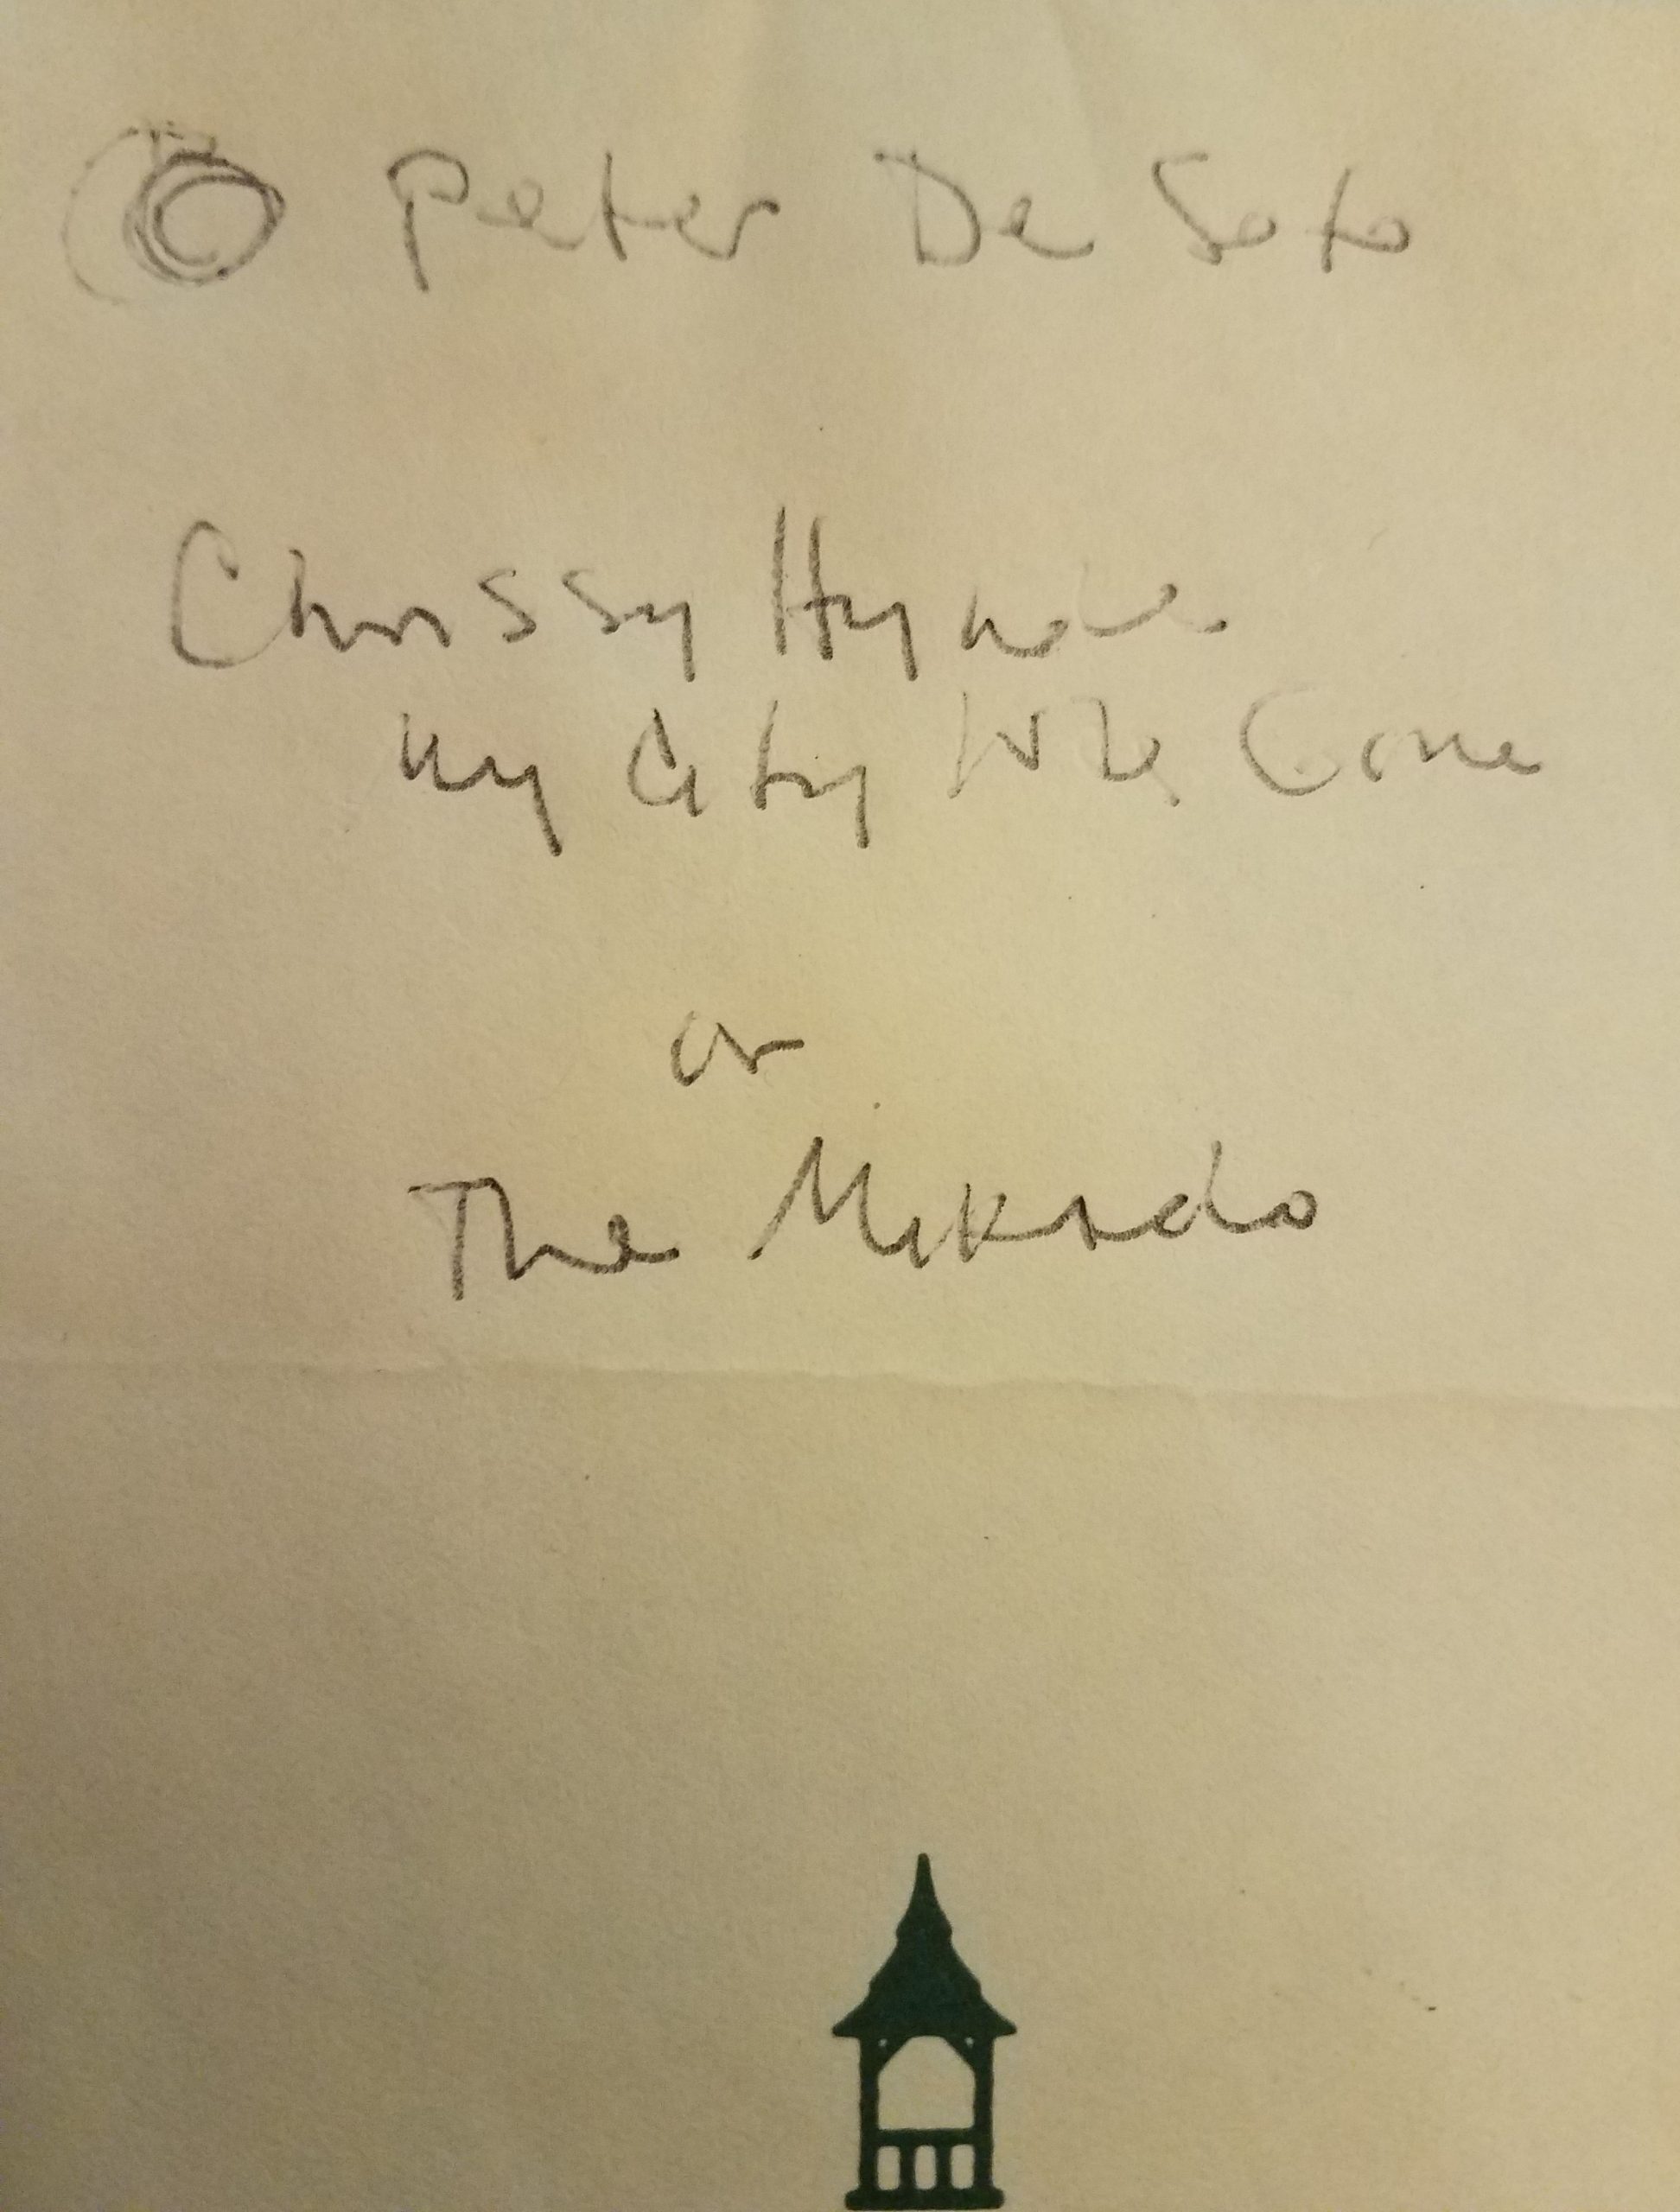 Peter De Soto
Chrissy Hynde
My City Was Gone
or
The Mikado